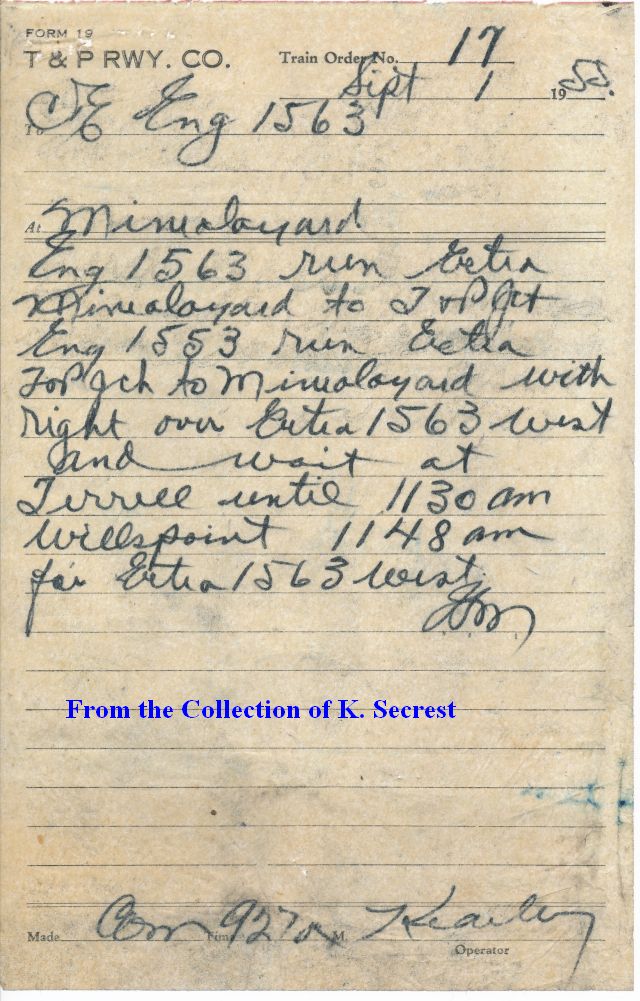 FORM 19
T & P RWY. CO.
Train Order No. 17
Sept 1 1955.
To C&E Eng 1563
At Mineolayard
Eng 1563 run Extra
Mineolayard to T&P Jct
Eng 1553 run Extra
T&P Jct to Mineolayard with
right over Extra 1563 west
and wait at
Terrell until 1130 am
Willspoint 1148 am
for Extra 1563 west
From the Collection of K. Secrest
Made Com Time 927 a M.
Operator